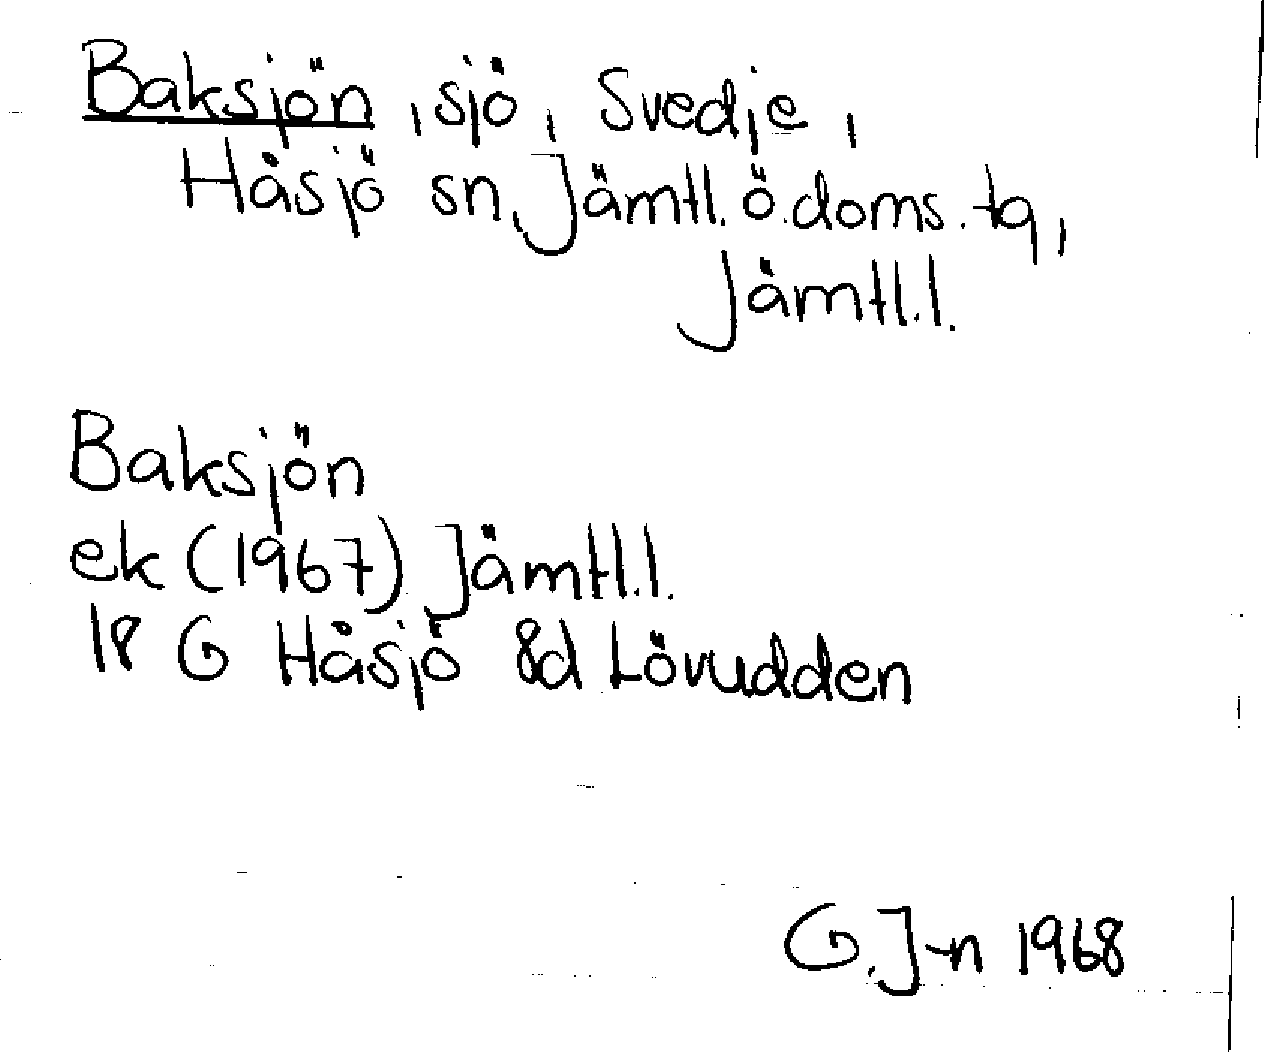 Baksjön, sjö, Svedje,
Håsjö sn, Jämtl. ö. doms. tg,
Jämtl. l.
Baksjön
ek (1967) Jämtl. l.
18 G Håsjö 8d Lövudden
G. J-n 1968